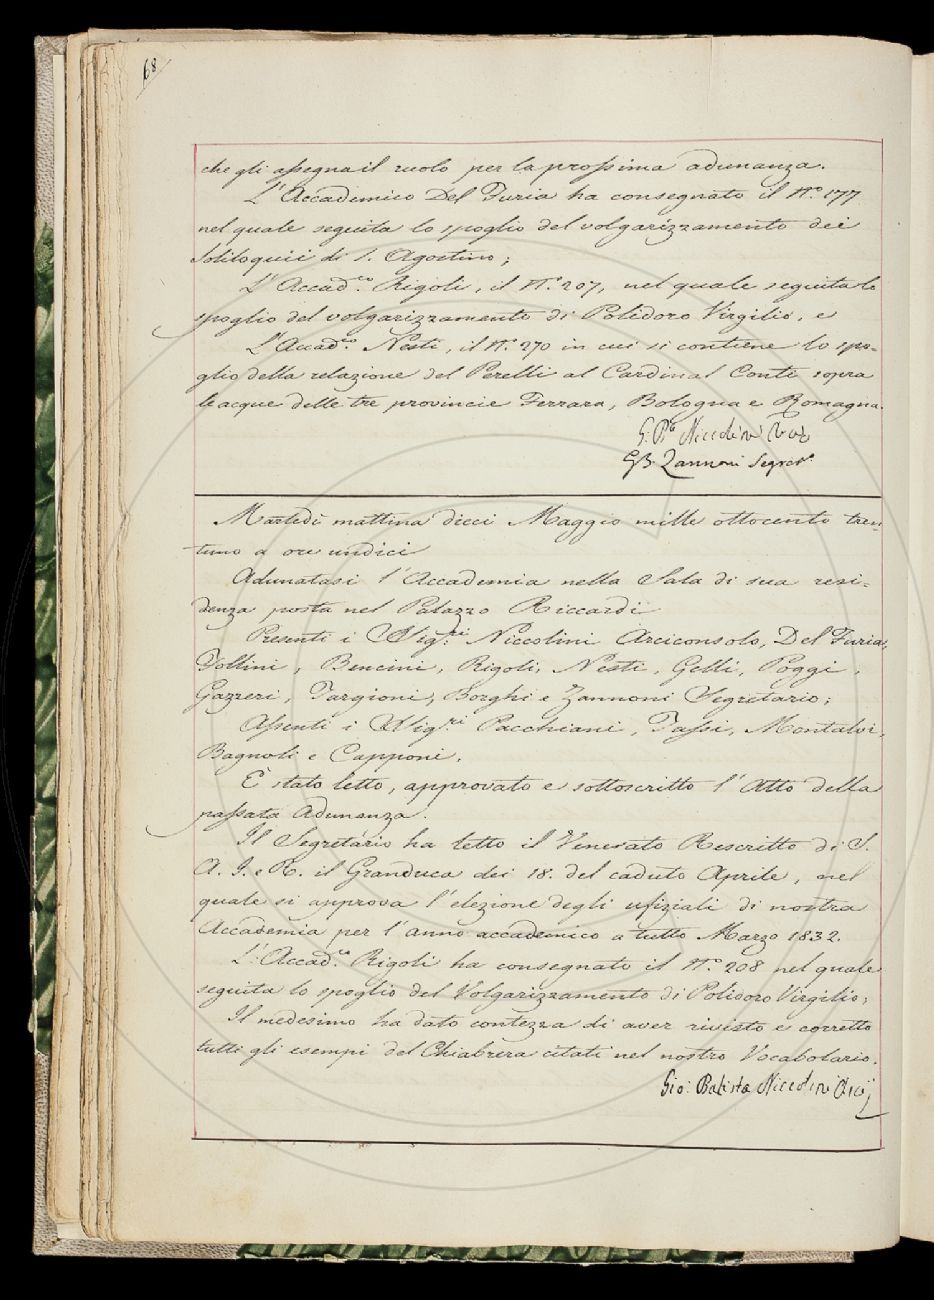 68
che gli assegna il ruolo per la prossima adunanza.
L'Accademico Del Furia ha consegnato il N.º 177
nel quale seguita lo spoglio del volgarizzamento dei
Soliloquii di S. Agostino;
L'Accad.co Rigoli, il N.º 207, nel quale seguita lo
spoglio del volgarizzamento di Polidoro Virgilio, e
L'Accad.co Nesti, il N.º 270 in cui si contiene lo spo-
glio della relazione del Perelli al Cardinal Conti sopra
le acque delle tre provincie Ferrara, Bologna e Romagna.
G: Bta Niccolini
GB. Zannoni Segret.º
Martedì mattina dieci Maggio mille ottocento tren-
tuno a ore undici
Adunatasi l'Accademia nella Sala di sua resi-
denza posta nel Palazzo Riccardi
Presenti i Sig:ri Niccolini Arciconsolo, Del Furia,
Follini, Bencini, Rigoli, Nesti, Gelli, Poggi,
Gazzeri, Targioni, Borghi e Zannoni Segretario;
Assenti i Sig:ri Pacchiani, Tassi, Montalvi,
Bagnoli e Capponi.
È stato letto, approvato e sottoscritto l'Atto della
passata Adunanza.
Il Segretario ha letto il Venerato Rescritto di S.
A. I. e R. il Granduca dei 18. del caduto Aprile, nel
quale si approva l'elezione degli ufiziali di nostra
Accademia per l'anno accademico a tutto Marzo 1832.
L'Accad.co Rigoli ha consegnato il N.º 208 nel quale
seguita lo spoglio del Volgarizzamento di Polidoro Virgilio;
Il medesimo ha dato contezza di aver rivisto e corretto
tutti gli esempi del Chiabrera citati nel nostro Vocabolario.
Gio: Batista Niccolini